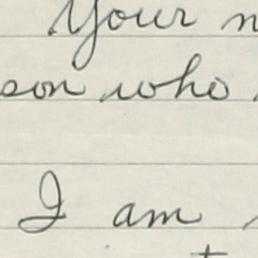 Your
son who
I am